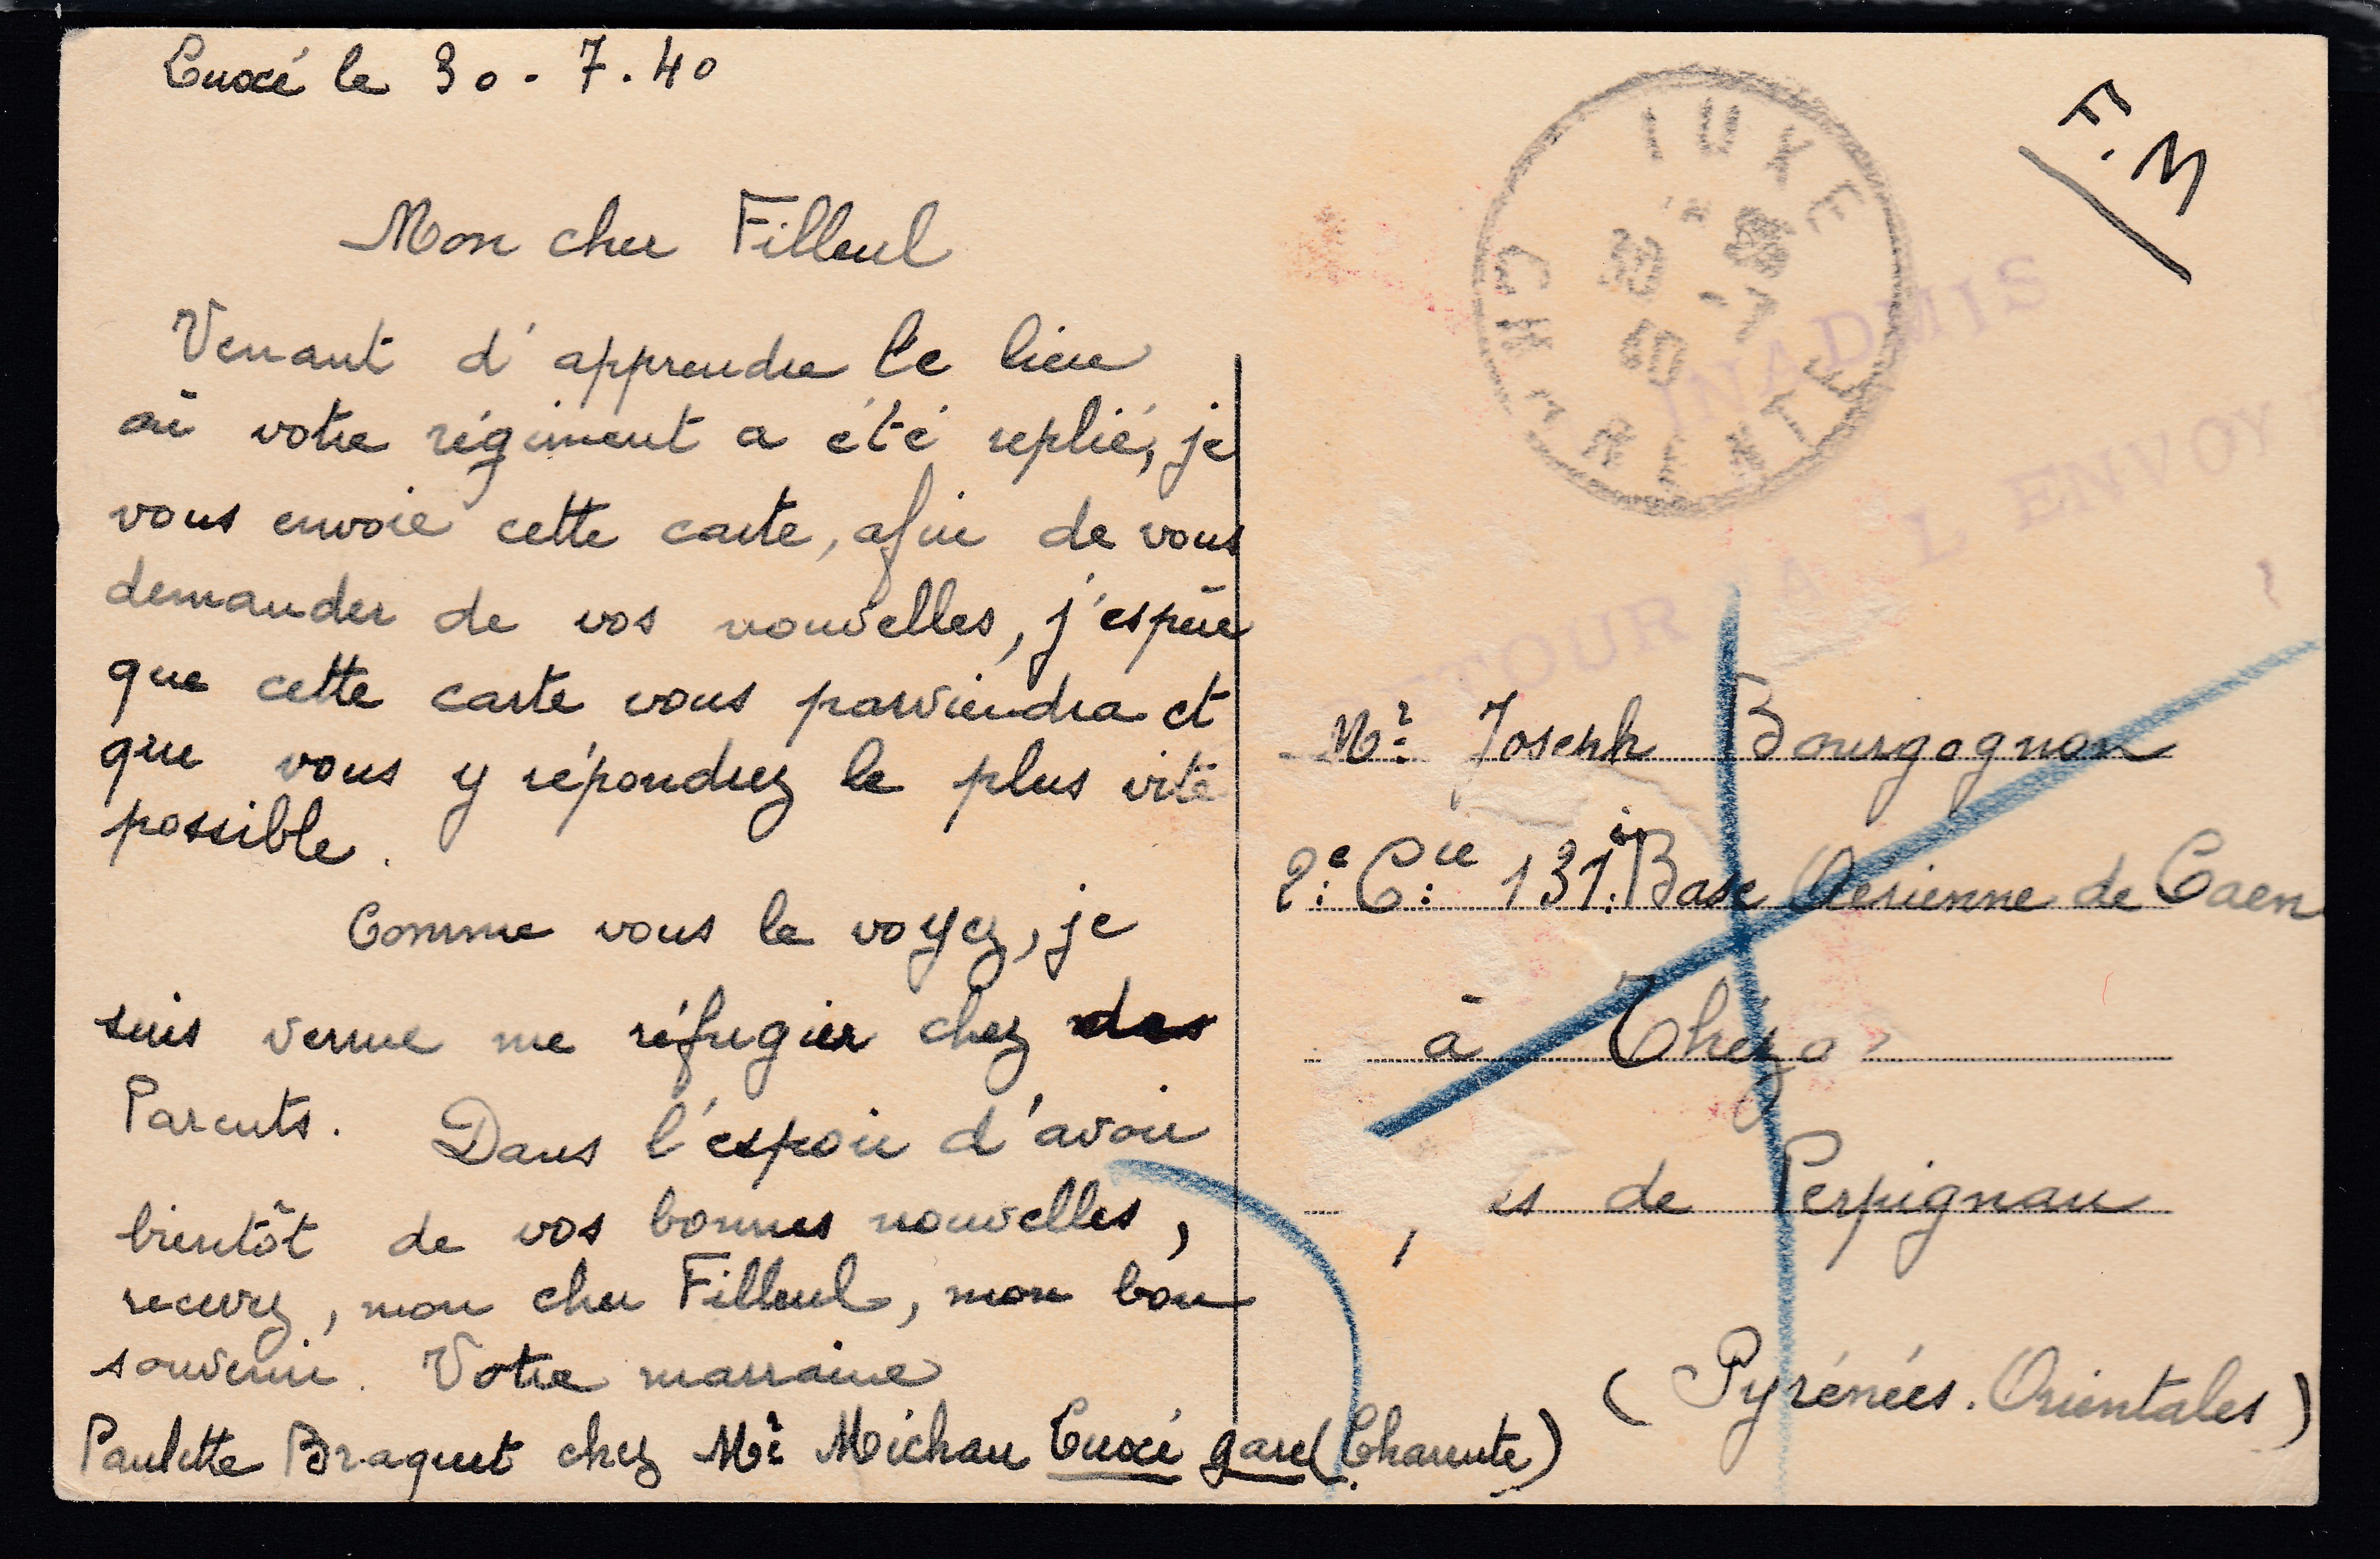 Luxé le 30-7.40
Mon cher Filleul
Venant d'apprendre le lieu
où votre régiment a été replié, je
vous envoie cette carte, afin de vous
demander de vos nouvelles, j'espère
que cette carte vous parviendra et
que vous y répondrez le plus vite
possible.
Comme vous le voyez, je
suis venue me réfugier chez des
Parents. Dans l'espoir d'avoir
bientôt de vos bonnes nouvelles,
recevez, mon cher Filleul, mon bon
souvenir. Votre marraine
Paulette Braquet chez Mr Michau Luxé gare (Charente)
F.M
LUXE
30 -7
40
CHARENTE
INADMIS
RETOUR A L ENVOY
Mr Joseph Bourgognon
2e Cie 131. Base Aérienne de Caen
à Théza
de Perpignan
(Pyrénées.Orientales)